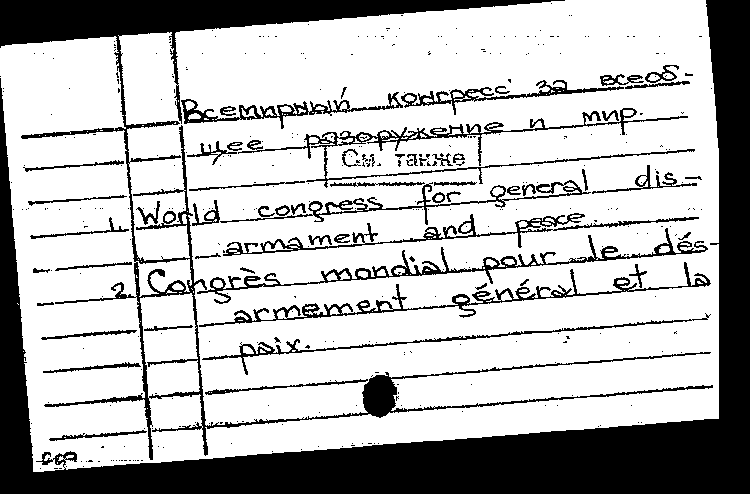 Всемирный конгресс за всеоб-
щее разоружение и мир.
См. также
1. World congress for general dis-
armament and peace.
2. Congrès mondial pour le dés-
armement général et la
paix.